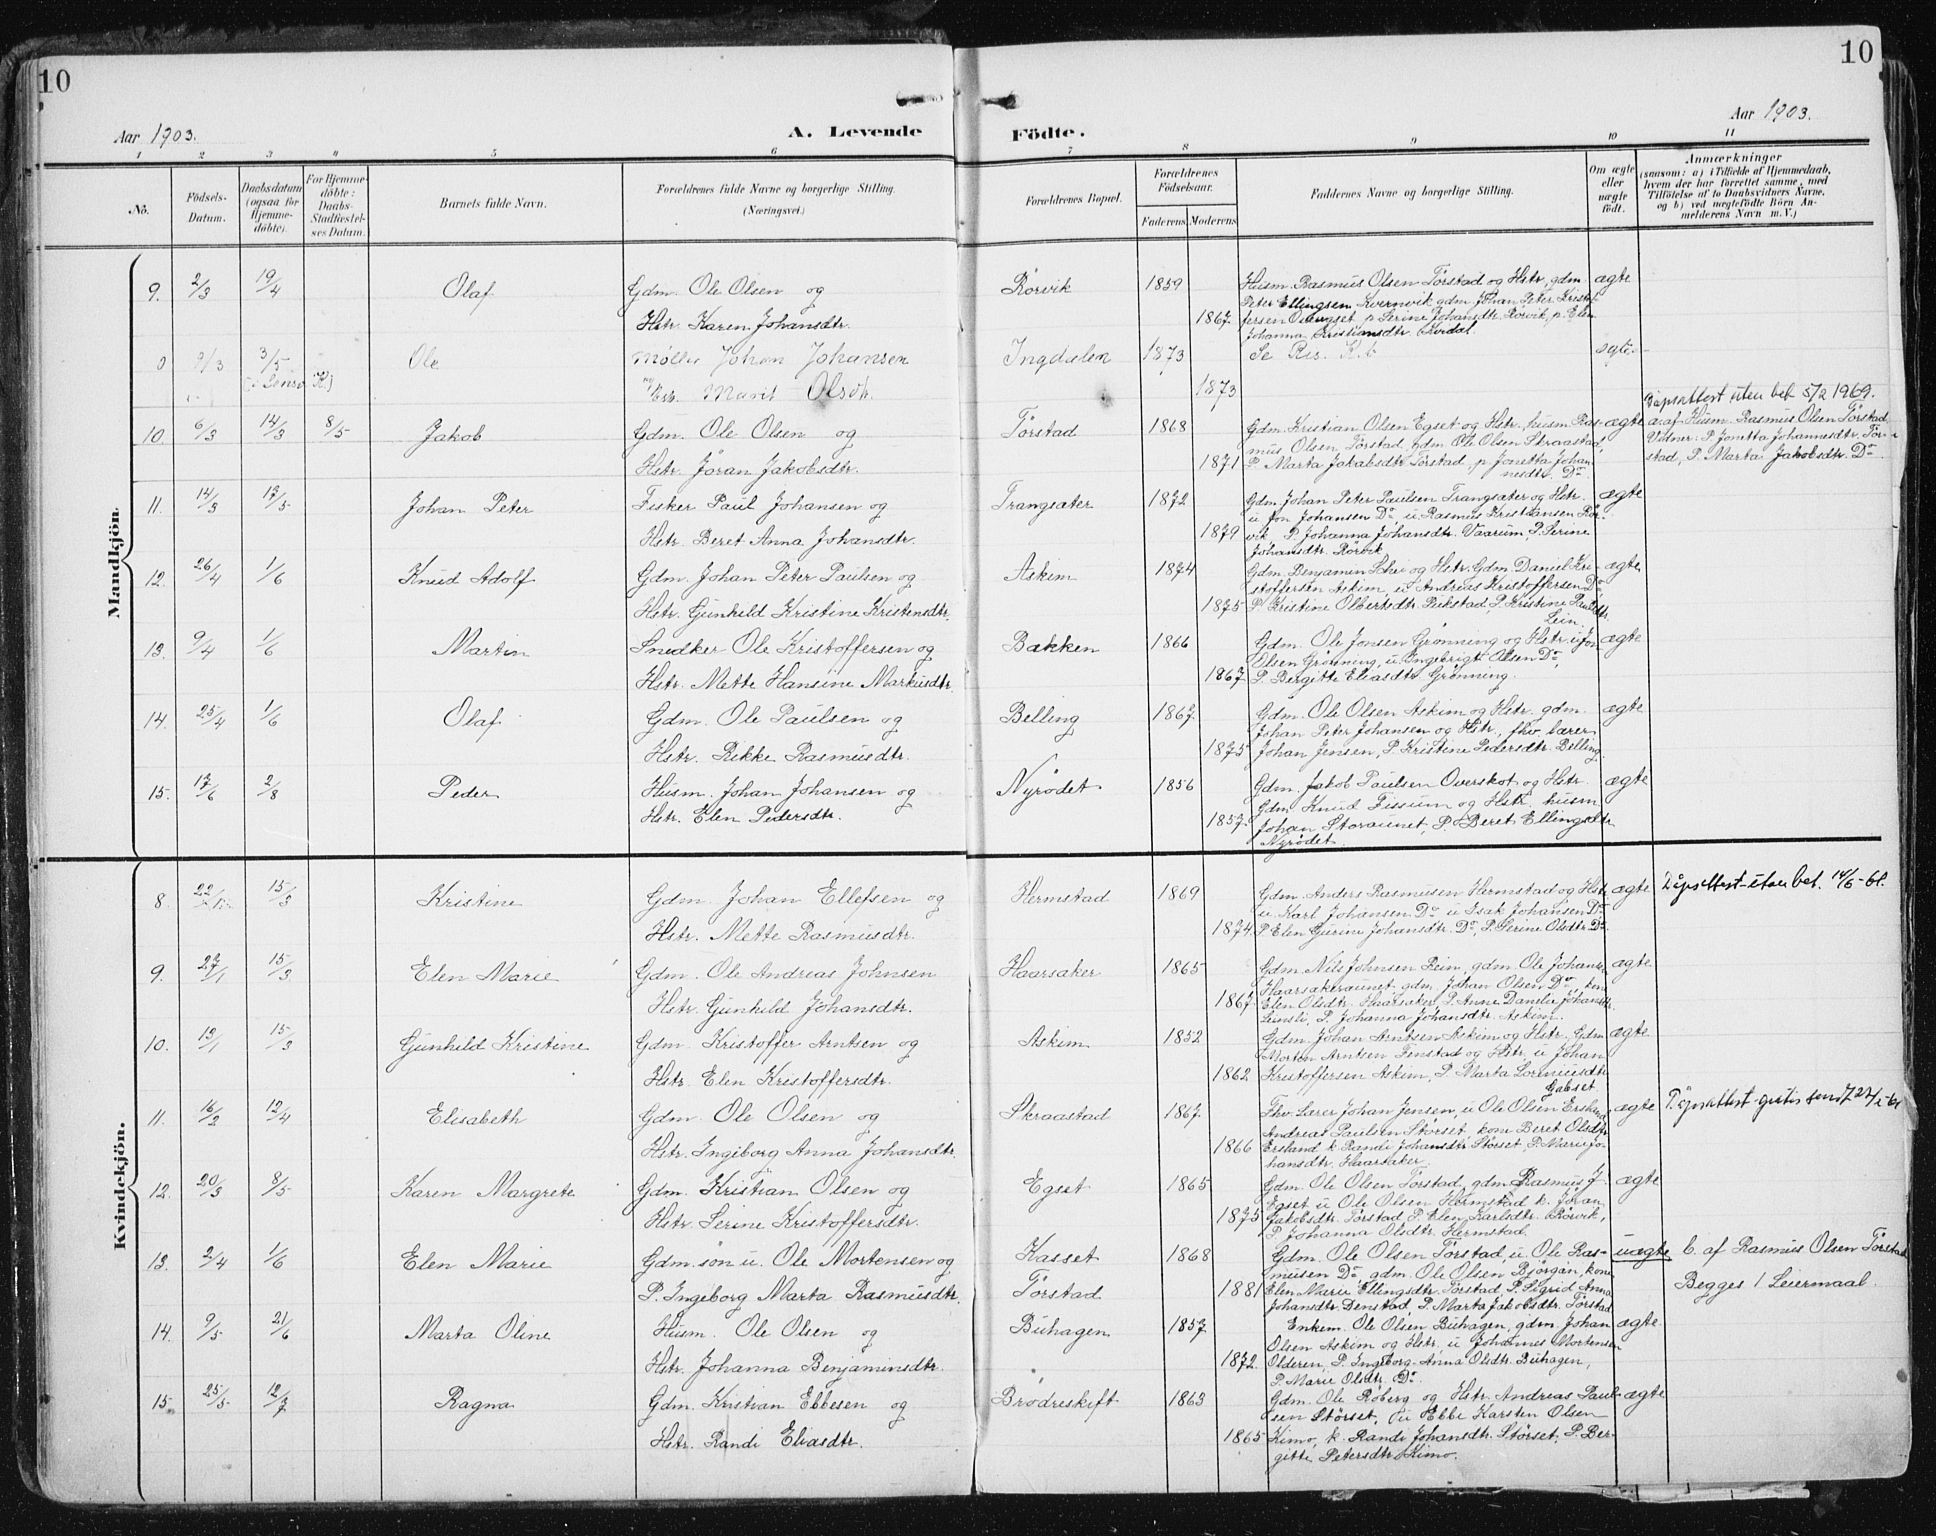 10
10
Aar 1903.
A. Levende Födte.
Aar 1903.
1 2 3 4 5 6 7 8 9 10 11
No.
Födsels-Datum.
Daabsdatum (ogsaa for Hjemmedöbte).
For Hjemmedöbte: Daabs-Stadfæstelses Datum.
Barnets fulde Navn.
Forældrenes fulde Navne og borgerlige Stilling.
(Næringsvei.)
Forældrenes Bopæl.
Forældrenes Födselsaar.
Faderens
Moderens
Faddernes Navne og borgerlige Stilling.
Om ægte eller uægte födt.
Anmærkninger
(saasom: a) i Tilfælde af Hjemmedaab, hvem der har forrettet samme, med Tilföielse af to Daabsvidners Navne, og b) ved uægtefödte Börn Anmelderens Navn m. V.)
Mandkjön.
9. 2/3 19/4 Olaf Gdm. Ole Olsen og Rörvik 1859 Husm. Rasmus Olsen Törstad og Hstr., gdm. ægte
Peter Ellingsen Kvernvik gdm. Johan Peter Krist-
Hstr. Karen Johansdtr. 1867 fersen Ovenget p. Serine Johansdtr. Rörvik, p. Elen
Johanna Kristiansdtr.
3/5 Ole Møller Johan Johansen Ingdalen 1873 Se Res. Kb ægte
Marit Olsdr. 1873
Dåpsattest uten bet 5/2 1969.
10 6/3 14/3 8/5 Jakob Gdm. Ole Olsen og Törstad 1868 Gdm. Kristian Olsen Egset og Hstr., husm. Ras- ægte a. af Husm. Rasmus Olsen Törstad
mus Olsen Törstad, gdm. Ole Olsen Skraastad, Vidner: P. Jonetta Johannesdtr. Tör-
Hstr. Jöran Jakobsdtr. 1871 P. Marta Jakobsdtr. Törstad, p. Jonetta Johan- stad, P. Marta Jakobsdtr. Do
nesdtr. Do
11. 14/3 17/5 Johan Peter Fisker Paul Johansen og Trangsæter 1872 Gdm. Johan Peter Paulsen Trangsæter og Hstr. ægte
u. Jon Johansen Do u. Rasmus Kristiansen Rör-
Hstr. Beret Anna Johansdtr. 1879 vik P. Johanna Johansdtr. Vaarum P. Serine
Johansdtr. Rörvik
12. 26/4 1/6 Knud Adolf Gdm. Johan Peter Paulsen og Askim 1874 Gdm. Benjamin og Hstr. Gdm. Daniel Kri- ægte
stoffersen Askim, u. Andreas Kristoffersen Do
Hstr. Gunhild Kristine Kristensdtr. 1875 P. Kristine Olbertsdtr. Rikstad, P. Kristine Paulsdtr.
Lein.
13. 9/4 1/6 Martin Snedker Ole Kristoffersen og Bakken 1866 Gdm. Ole Jonsen Grönning og Hstr. u. Jon ægte
Olsen Grönning, u. Ingebrigt Olsen Do,
Hstr. Mette Hansine Markusdtr. 1867 P. Bergitte Eliasdtr. Grönning.
14. 25/4 1/6 Olaf Gdm. Ole Paulsen og Belling 1867 Gdm. Ole Olsen Askim og Hstr. gdm. ægte
Johan Peter Johansen og Hstr., fhv. lærer
Hstr. Rikke Rasmusdtr. 1875 Johan Jensen, P. Kristine Pedersdtr. Belling.
15. 17/6 2/8 Peder Husm. Johan Johansen og Nyrödet 1856 Gdm. Jakob Paulsen Overskot og Hstr. ægte
Gdm. Knud Fissum og Hstr. husm.
Hstr. Elen Pedersdtr. 1857 Johan Storaunet, P. Beret Ellingsdtr.
Nyrödet.
Kvindekjön.
8. 15/3 Kristine Gdm. Johan Ellefsen og Hermstad 1869 Gdm. Anders Rasmusen Hermstad og Hstr. ægte Dåpsattest uten bet. 14/6-61.
u. Karl Johansen Do u. Isak Johansen Do
Hstr. Mette Rasmusdtr. 1874 P. Elen Gurine Johansdtr. Do, P. Serine Olsdtr. Do
9. 27/1 15/3 Elen Marie Gdm. Ole Andreas Johnsen Haarsaker 1865 Gdm. Nils Johnsen Rein, gdm. Ole Johans. ægte
Haarsakeraunet, gdm. Johan Olsen Do,
Hstr. Gunhild Johansdtr. 1867 Elen Olsdtr. Haarsaker, P. Anne Danelie Johansdtr.
Leinsli, P. Johanna Johansdtr. Askim.
10. 13/1 15/3 Gunhild Kristine Gdm. Kristoffer Arntsen og Askim 1852 Gdm. Johan Arntsen Askim og Hstr. Gdm. ægte
Morten Arntsen Finstad og Hstr. u. Johan
Hstr. Elen Kristoffersdtr. 1862 Kristoffersen Askim, P. Marta
Gabset
11. 16/2 12/4 Elisabeth Gdm. Ole Olsen og Skraastad 1867 Fhv. Lærer Johan Jensen, u. Ole Olsen Ersland ægte Dåpsattest gratis
Andreas Paulsen Störset, kone Beret Olsdtr.
Hstr. Ingeborg Anna Johansdtr. 1866 Ersland k. Randi Johansdtr. Störset, P. Marie Jo-
hansdtr. Haarsaker.
12. 20/3 8/5 Karen Margrete Gdm. Kristian Olsen og Egset 1865 Gdm. Ole Olsen Törstad, gdm. Rasmus J. ægte
Egset u. Ole Olsen Hermstad k. Jöran
Hstr. Serine Kristoffersdtr. 1875 Jakobsdtr. Törstad P. Elen Karlsdtr. Rörvik,
P. Johanna Olsdtr. Hermstad.
13. 2/4 1/6 Elen Marie Gdm.sön u. Ole Mortensen og Kasset 1868 Gdm. Ole Olsen Törstad, u. Ole Ras- uægte b. af Rasmus Olsen Törstad
musen Do, gdm. Ole Olsen Björgan, kone
P. Ingeborg Marta Rasmusdtr. Törstad 1881 Elen Marie Ellingsdtr. Törstad, P. Sigrid Anna Begges 1 Leiermaal
Johansdtr. Denstad, P. Marta Jakobsdtr. Törstad
14. 9/5 21/6 Marta Oline Husm. Ole Olsen og Buhagen 1857 Enkem. Ole Olsen Buhagen, gdm. Johan ægte
Olsen Askim og Hstr. u. Johannes Mortensen
Hstr. Johanna Benjaminsdtr. 1872 Olderen, P. Ingeborg Anna Olsdtr. Buhagen,
P. Marie Olsdtr. Do.
15. 25/5 12/7 Ragna Gdm. Kristian Ebbesen og Brödreskift 1863 Gdm. Ole Röberg og Hstr. Andreas Paul- ægte
sen Störset, u. Ebbe Karsten Olsen
Hstr. Randi Eliasdtr. 1865 Kimo, k. Randi Johansdtr. Störset, P. Ber-
gitte Petersdtr. Kimo.